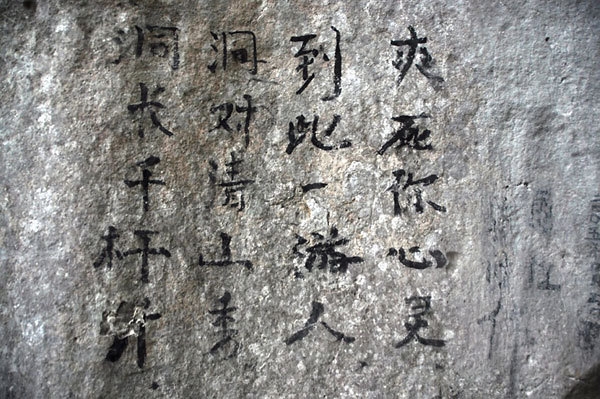 爽死你心灵
到此一游人
洞对清山秀
洞长千